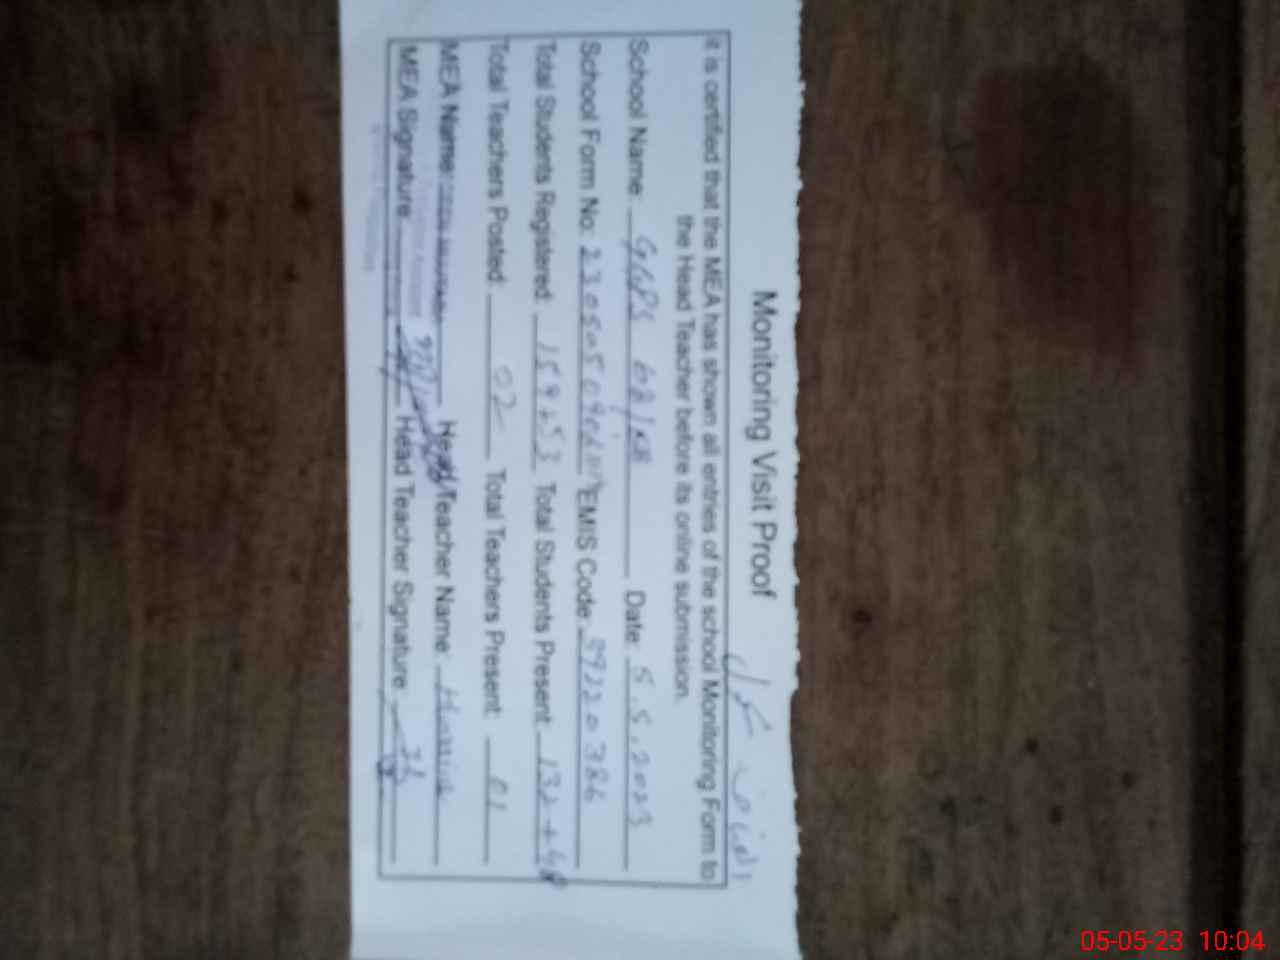 Monitoring Visit Proof
It is certified that the MEA has shown all entries of the school Monitoring Form to
the Head Teacher before its online submission.
School Name: GGPS 68/KB Date: 5.5.2023
School Form No: EMIS Code: 39220386
Total Students Registered: 159+53 Total Students Present: 132+48
Total Teachers Posted: 02 Total Teachers Present: 01
MEA Name: Head Teacher Name:
MEA Signature: Head Teacher Signature:
05-05-23 10:04